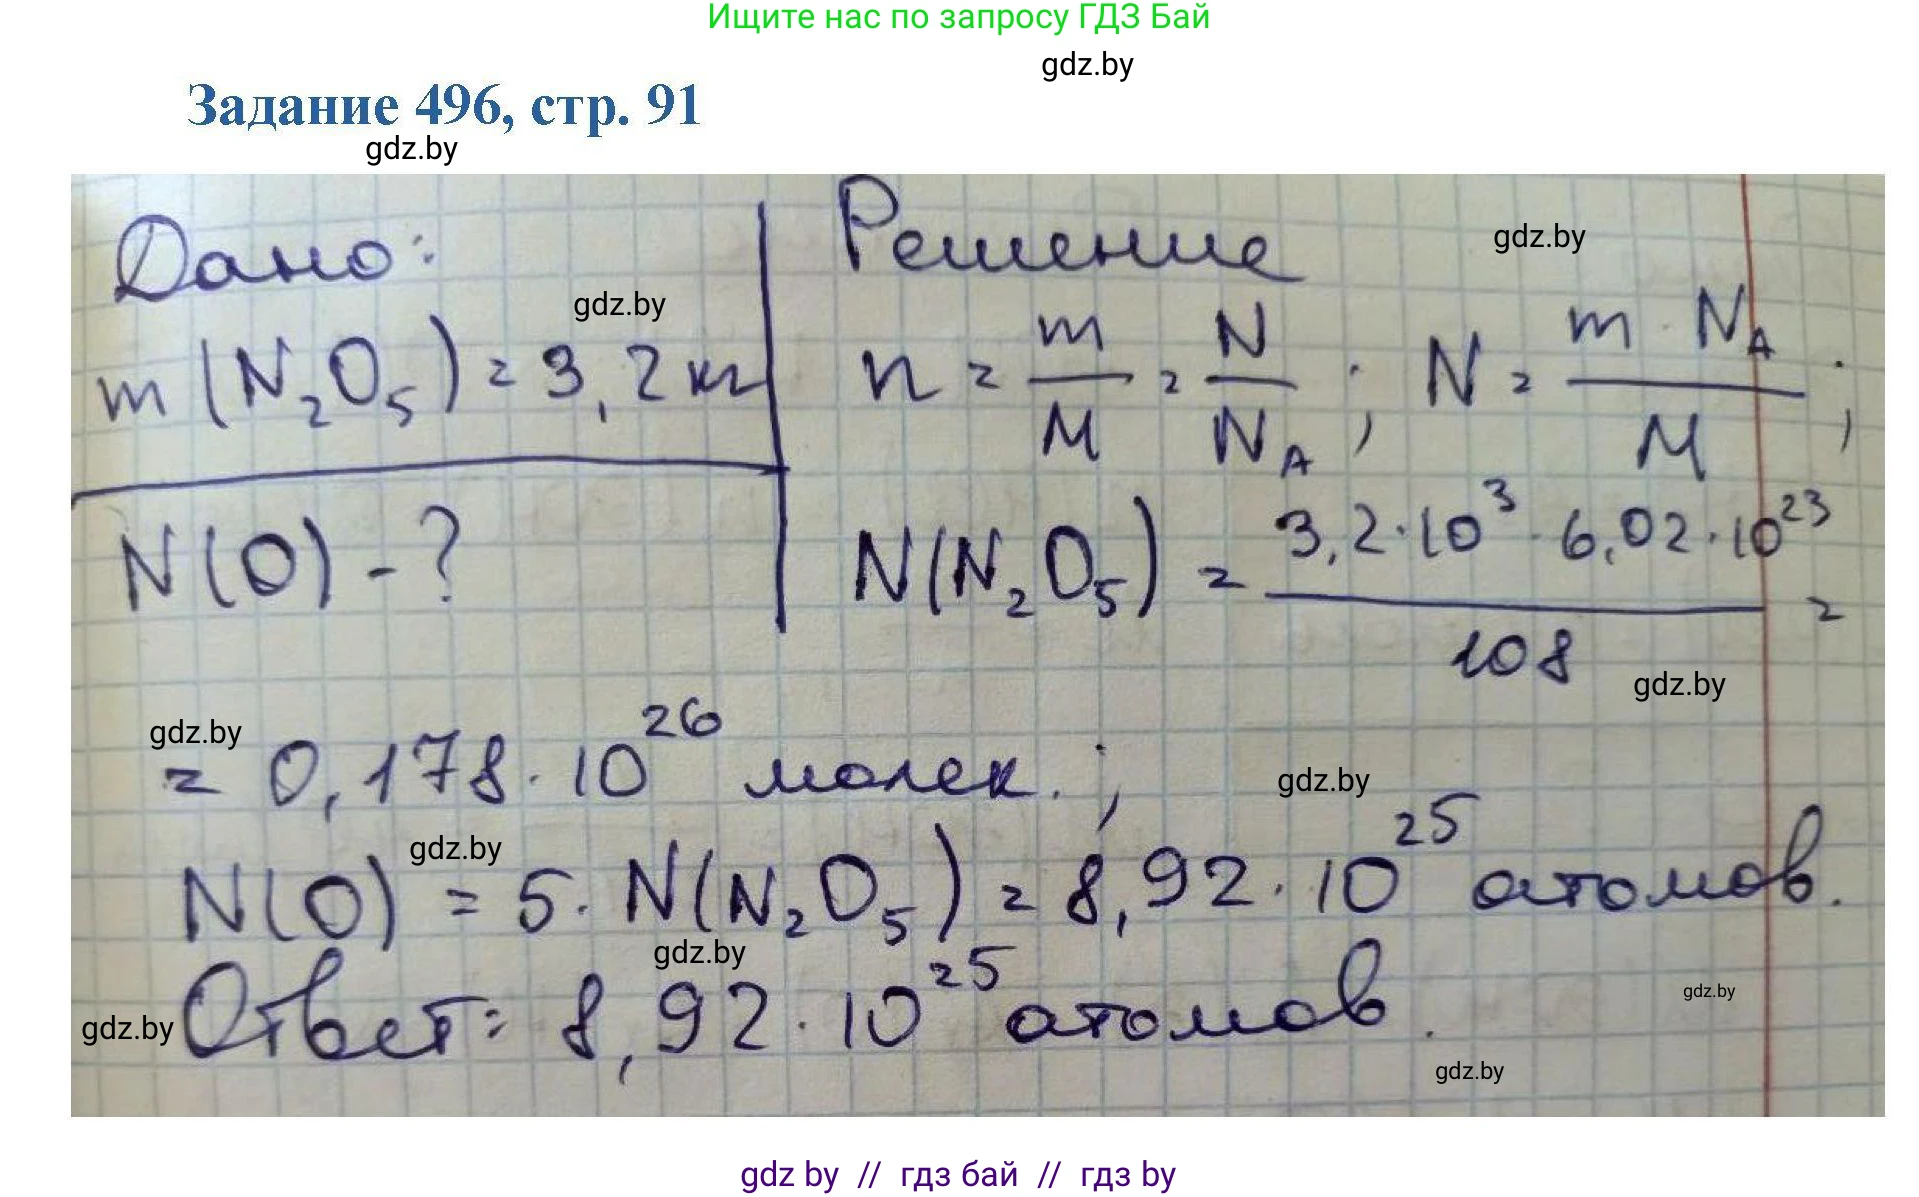 Ищите нас по запросу ГДЗ Бай
gdz.by
Задание 496, стр. 91
gdz.by
Дано:
m (N₂O₅) = 3,2 кг
N(O) - ?
Решение
gdz.by
gdz.by
n = m/M = N/N_A ; N = m · N_A / M ;
N(N₂O₅) = 3,2·10³ · 6,02·10²³ / 108 =
gdz.by
gdz.by
= 0,178 · 10²⁶ молек. ;
gdz.by
gdz.by
N(O) = 5 · N(N₂O₅) = 8,92 · 10²⁵ атомов.
gdz.by
Ответ: 8,92 · 10²⁵ атомов.
gdz.by
gdz.by
gdz.by
gdz by // гдз бай // гдз by